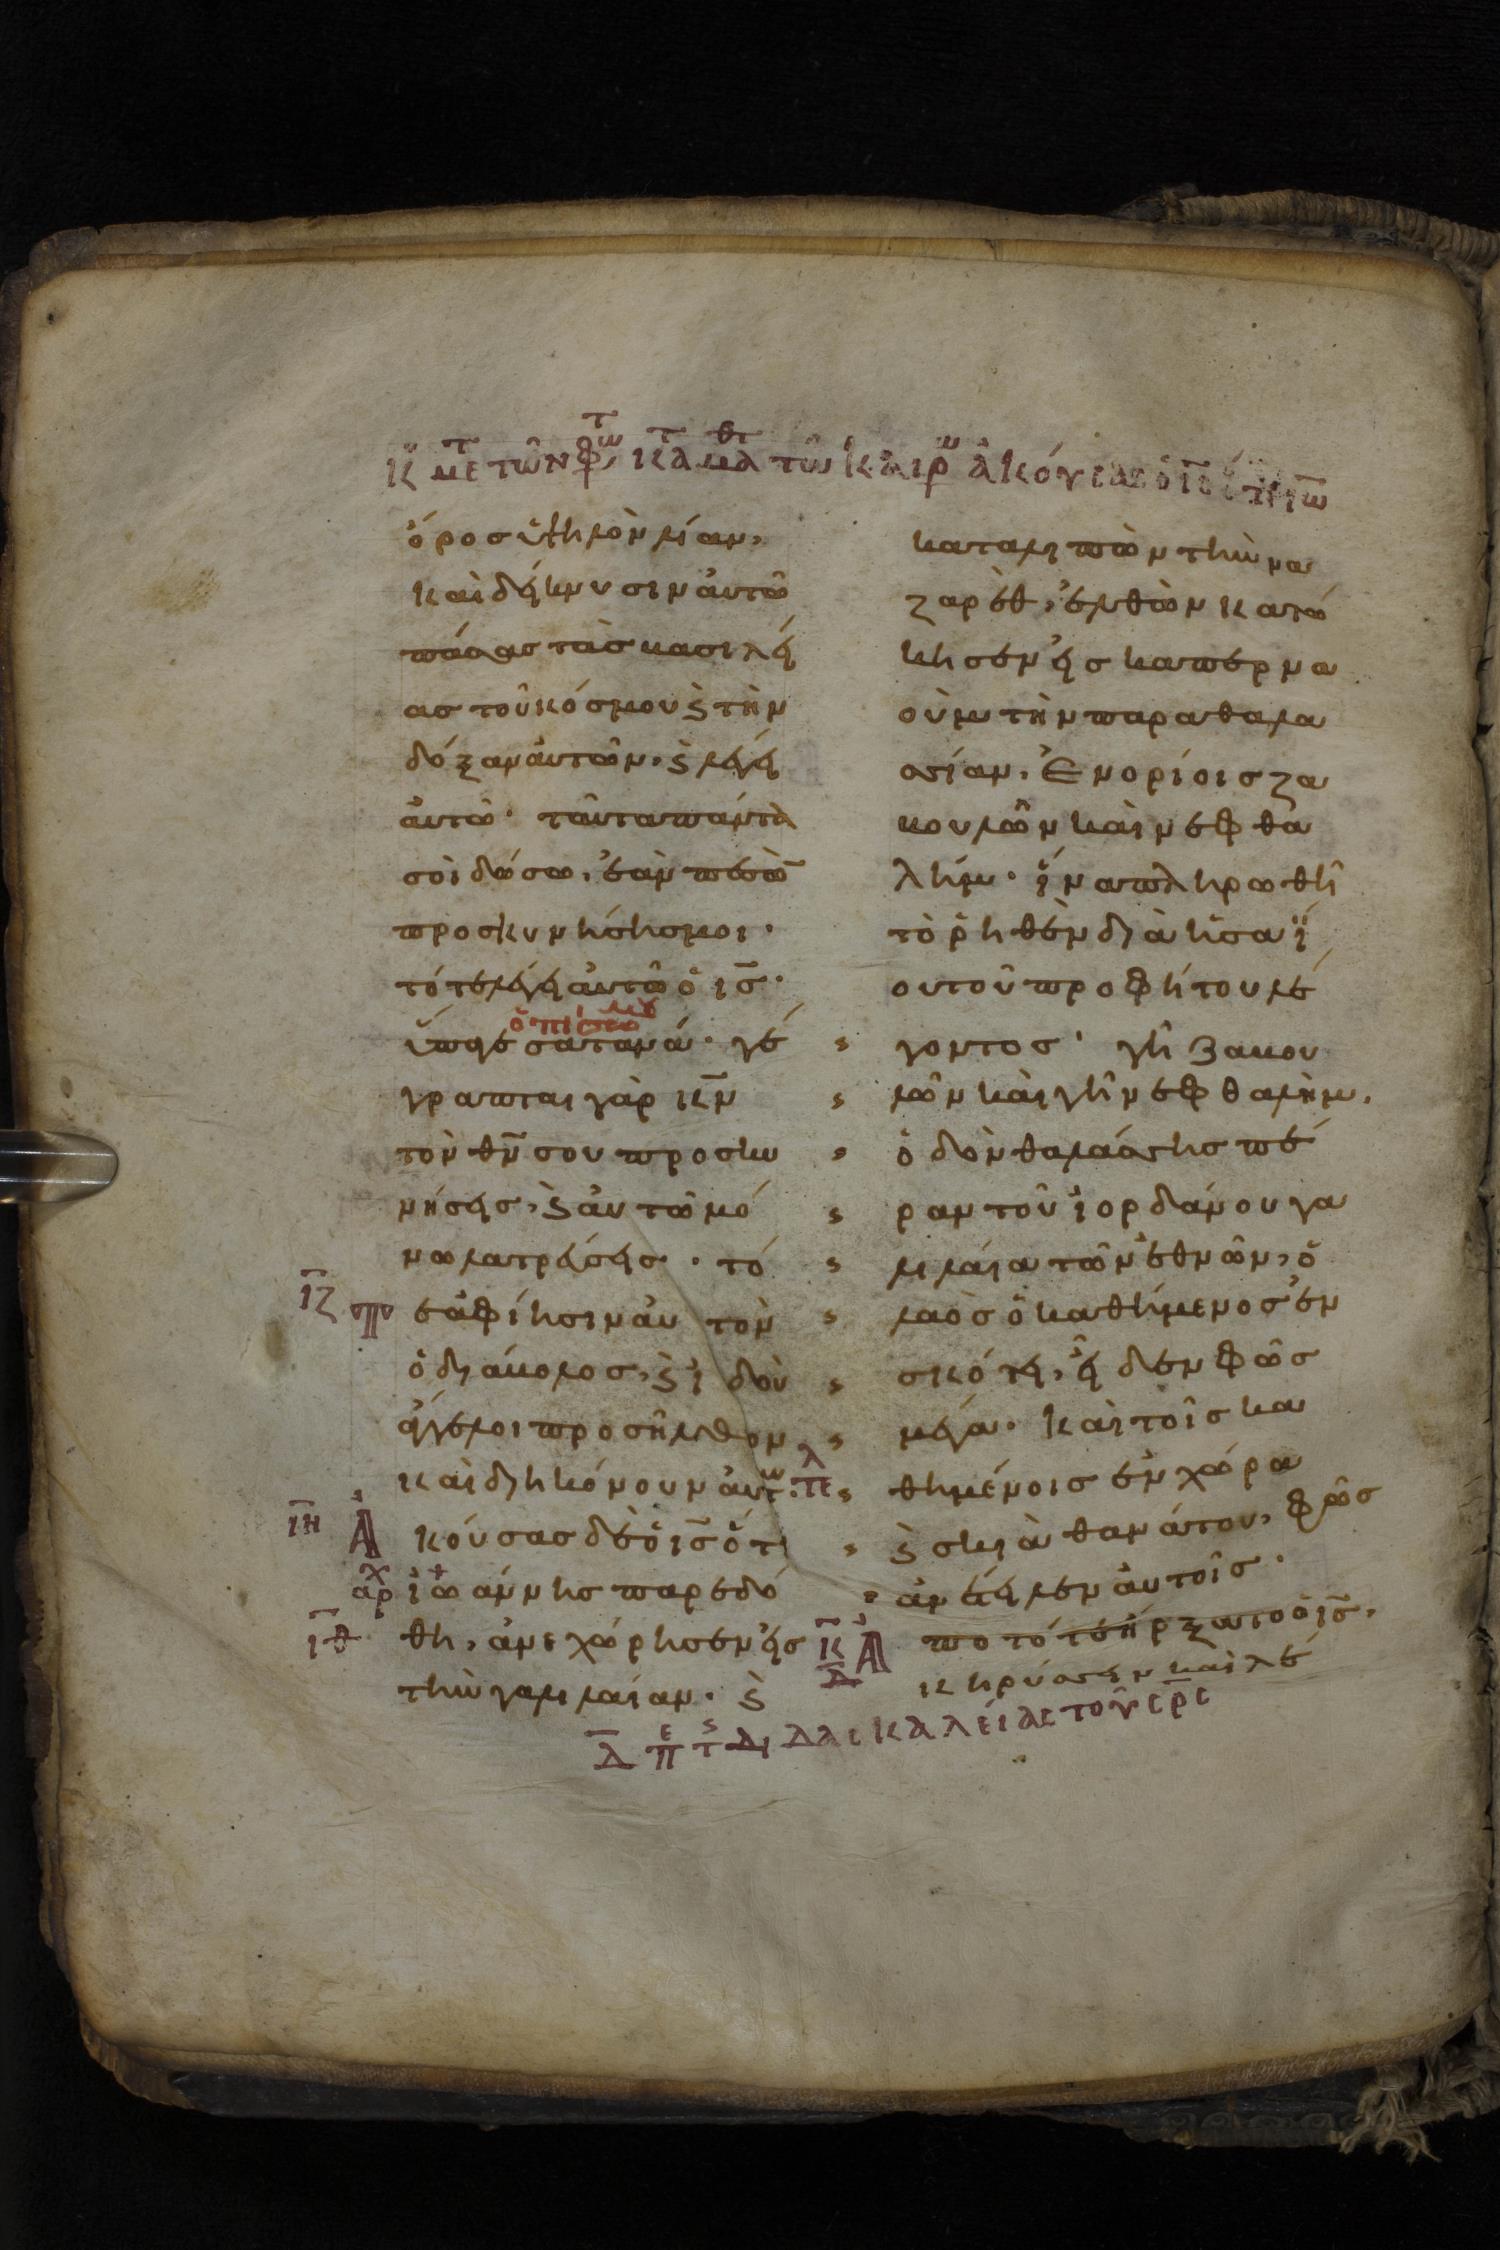 Κυ μετ τῶν φωτ κατ ματθ τῶ καιρω ἀκούσας ὁ ις ὅτι ιω
ὄρος ὑψηλὸν λίαν,
καὶ δείκνυσιν ἀυτῶ
πάσας τὰς βασιλεί
ας τοῦ κόσμου ϗ τὴν
δόξαν ἀυτῶν, ϗ λέγει
ἀυτῶ· ταῦτα πάντὰ
σοὶ δώσω, ἐὰν πεσὼ̄
προσκυνήσης μοι·
τότε λέγει ἀυτῶ ὁ ις̄·
ὀπίσω μου
ὕπαγε σατανᾶ· γέ
γραπται γὰρ κν̄
τὸν θν̄ σου προσκυ
νήσεις, ϗ ἀυτῶ μό
νω λατρέυσεις· τό
ιζ̄ τε ἀφίησιν ἀυτὸν
ὁ διάβολος, ϗ ἰδοὺ
ἄγγελοι προσῆλθον
καὶ διηκόνουν ἀυτω. τελ
ιη̄ Ἀκούσας δὲ ὁ ις̄ ὅτι
αρχ ἰωάννης παρεδό
ιθ̄ θη, ἀνεχώρησεν εἰς
τὴν γαλιλαίαν· ϗ
καταλιπὼν τὴν να
ζαρὲθ, ἐλθὼν κατώ
κησεν εἰς καπερνα
οὺμ τὴν παραθαλα
σσίαν, Ἐν ορίοις ζα
βουλὼν καὶ νεφθα
λήμ· ἵνα πληρωθῆ
τὸ ῥηθὲν διὰ ἡσαΐ
ου τοῦ προφήτου λέ
γοντος· γῆ ζαβου
λῶν καὶ γῆ νεφθαλὴμ,
ὁδὸν θαλάσσης πέ
ραν τοῦ ἰορδάνου γα
λιλάια τῶν ἐθνῶν, ὁ
λαὸς ὁ καθήμενος ἐν
σκότει, εἶδεν φῶς
μέγα· καὶ τοῖς κα
θημένοις ἐν χώρα
ϗ σκιὰ θανάτου, φῶς
ἀνέτειλεν ἀυτοῖς·
κ̄ δ̄ Ἀπο τότε ἤρξατο ὁ ις̄,
κηρύσσειν καὶ λέ
δ̄ πε τς διδασκαλείας τοῦ σρ̄ς